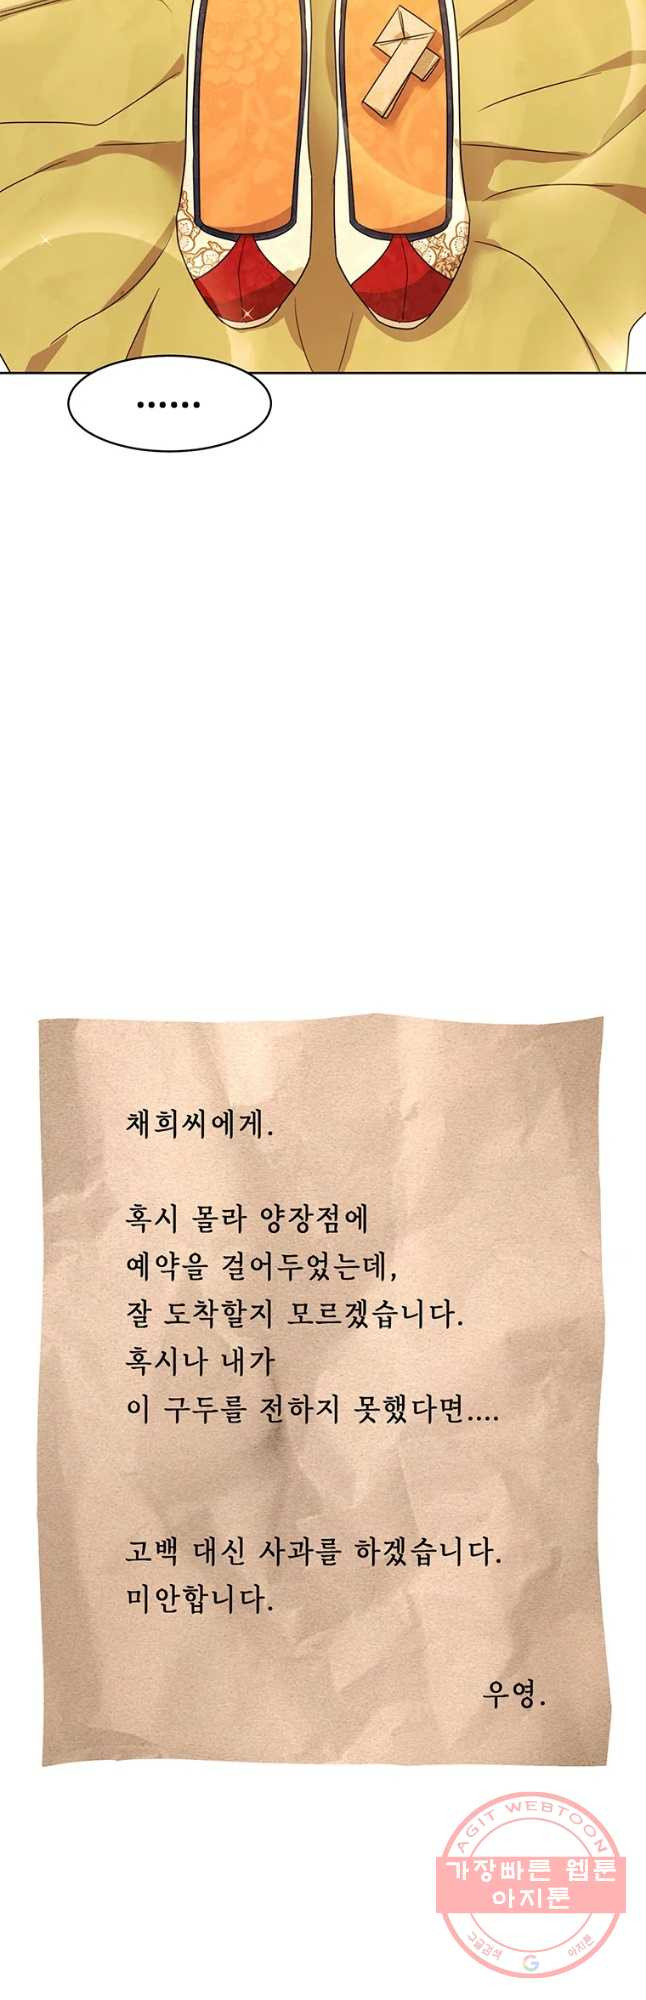 ······
채희씨에게.
혹시 몰라 양장점에
예약을 걸어두었는데,
잘 도착할지 모르겠습니다.
혹시나 내가
이 구두를 전하지 못했다면....
고백 대신 사과를 하겠습니다.
미안합니다.
우영.
AGIT WEBTOON
가장빠른 웹툰
아지툰
구글검색 G 아지툰